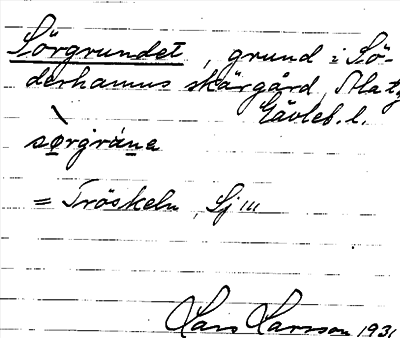 Sörgrundet, grund i Sö-
derhamns skärgård,
Gävleb. l.
sørgráṇa
= Tröskeln, Sj III
Lars Larsson 1931